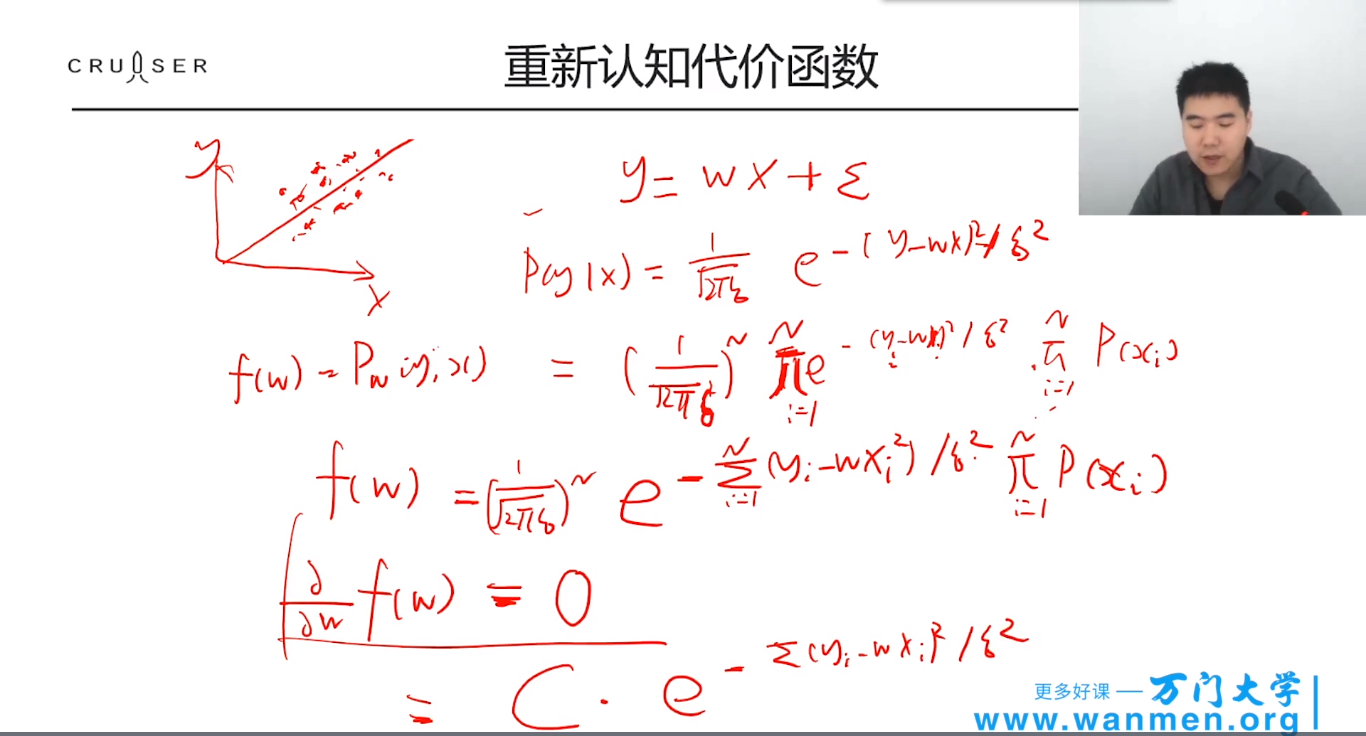 CRUISER
重新认知代价函数
y
x
y = wx + ε
P(y|x) = 1/√2πδ e^-(y-wx)²/δ²
f(w) = P_w(y,x) = (1/√2πδ)^N ∏_{i=1}^N e^-(y_i-wx_i)²/δ² ∏_{i=1}^N P(x_i)
f(w) = (1/√2πδ)^N e^-∑_{i=1}^N(y_i-wx_i²)/δ² ∏_{i=1}^N P(x_i)
∂/∂w f(w) = 0
= C · e^-∑(y_i-wx_i)²/δ²
更多好课 — 万门大学
www.wanmen.org